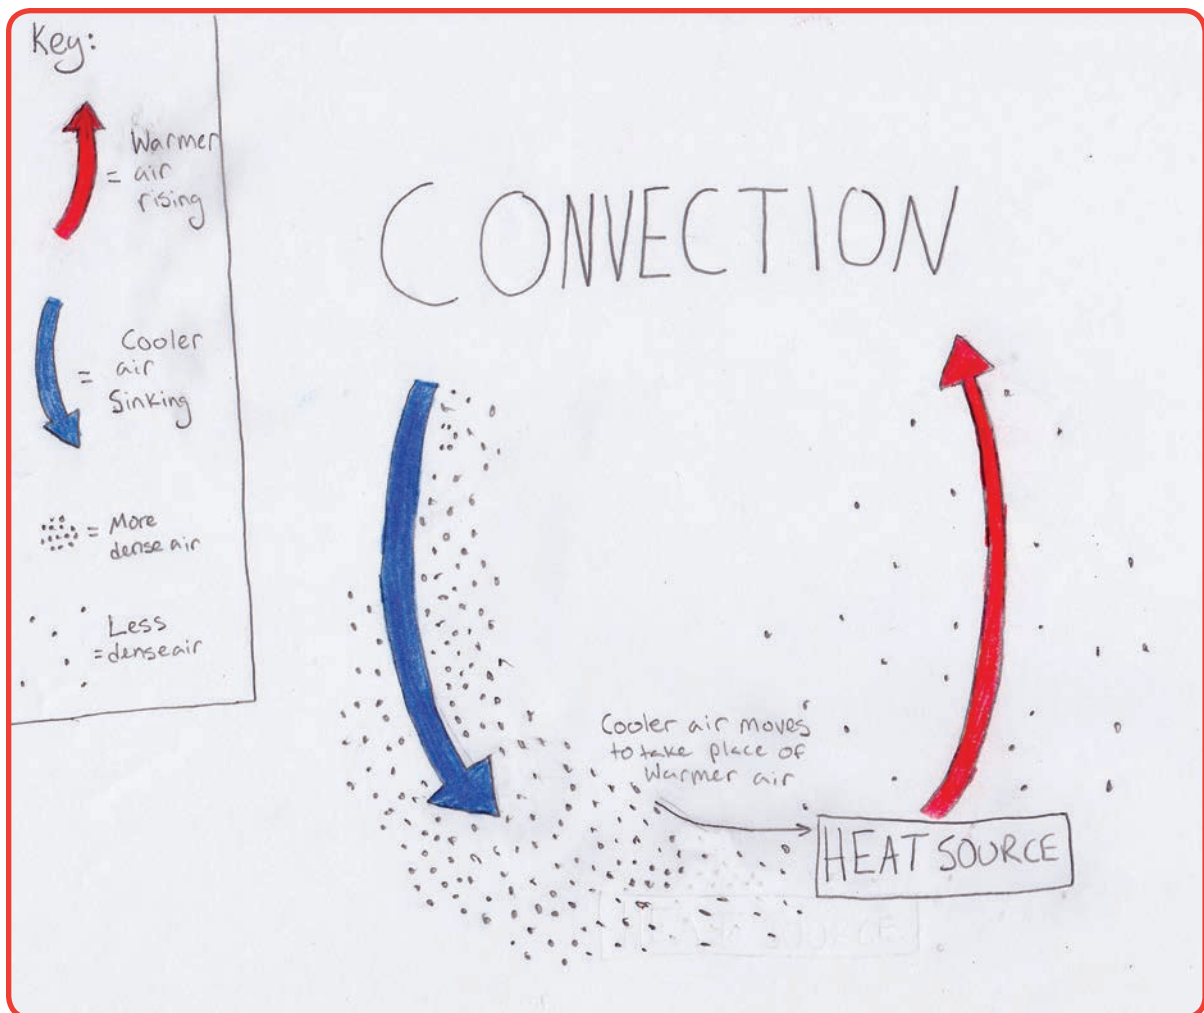 Key:
= Warmer
air
rising
= Cooler
air
Sinking
= More
dense air
Less
= dense air
CONVECTION
Cooler air moves
to take place of
Warmer air
HEAT SOURCE
HEAT SOURCE